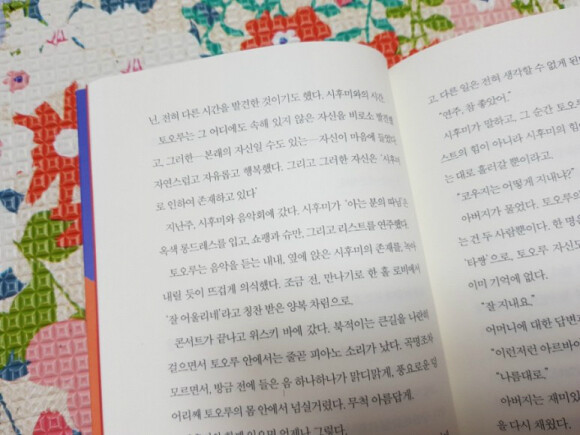 닌, 전혀 다른 시간을 발견한 것이기도 했다. 시후미와의 시간.
토오루는 그 어디에도 속해 있지 않은 자신을 비로소 발견했
고, 그러한─본래의 자신일 수도 있는─자신이 마음에 들었다.
자연스럽고 자유롭고 행복했다. 그리고 그러한 자신은 '시후미
로 인하여 존재하고 있다'
지난주, 시후미와 음악회에 갔다. 시후미가 '아는 분의 따님'은
옥색 롱드레스를 입고, 쇼팽과 슈만, 그리고 리스트를 연주했다.
토오루는 음악을 듣는 내내, 옆에 앉은 시후미의 존재를, 녹아
내릴 듯이 뜨겁게 의식했다. 조금 전, 만나기로 한 홀 로비에서
'잘 어울리네'라고 칭찬 받은 양복 차림으로.
콘서트가 끝나고 위스키 바에 갔다. 북적이는 큰길을 나란히
걸으면서 토오루 안에서는 줄곧 피아노 소리가 났다. 곡명조차
모르면서, 방금 전에 들은 음 하나하나가 맑디맑게, 풍요로운 물
어리째 토오루의 몸 안에서 넘실거렸다. 무척 아름답게.
함께 있으면 언제나 그렇다.
고, 다른 일은 전혀 생각할 수 없게 된
"연주, 참 좋았어."
시후미가 말하고, 그 순간 토오
스트의 힘이 아니라 시후미의 힘
는 대로 흘러갈 뿐이라고.
"코우지는 어떻게 지내냐?"
아버지가 물었다. 토오루
는 건 두 사람뿐이다. 한 명
'타짱'으로, 토오루 자신도
이미 기억에 없다.
"잘 지내요."
어머니에 대한 답변
"이런저런 아르바이
"나름대로."
아버지는 재미있
을 다시 채웠다.